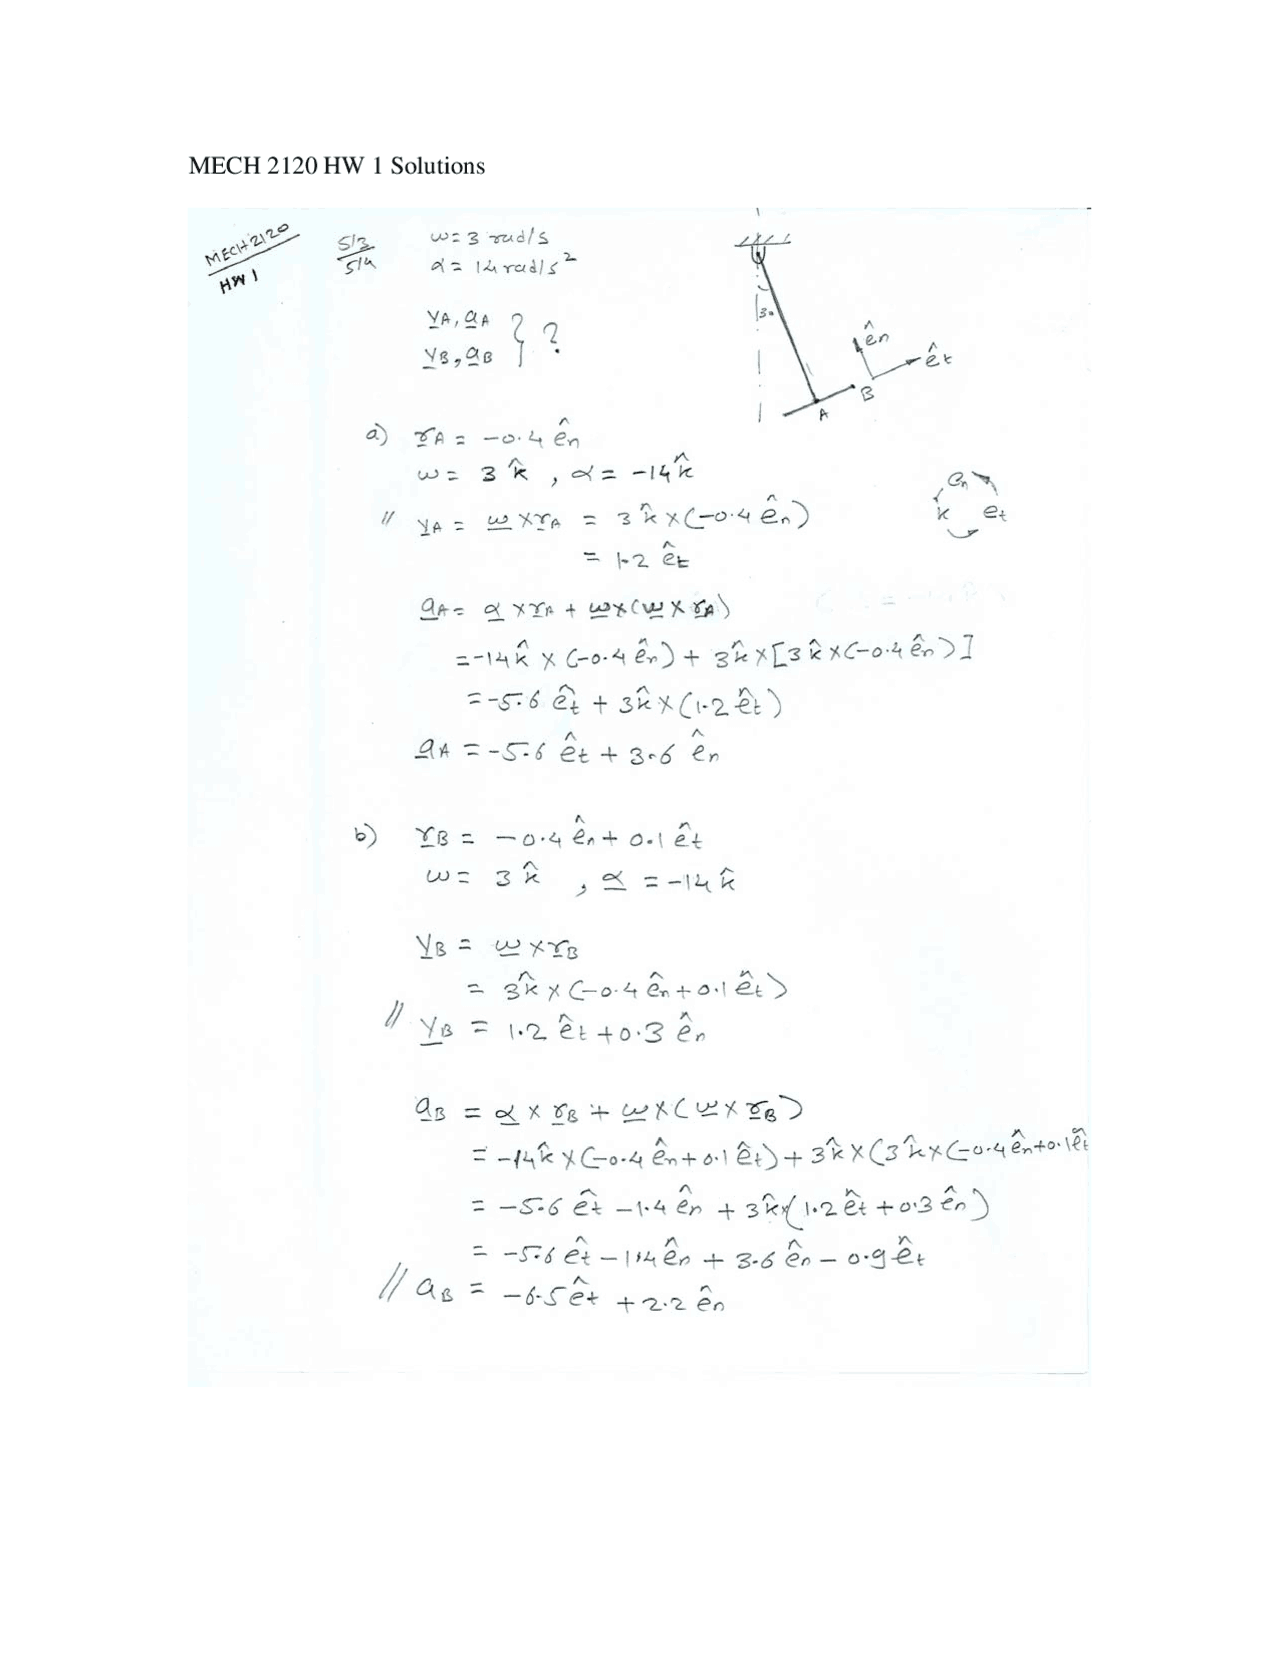 MECH 2120 HW 1 Solutions
MECH 2120
HW 1
5/3
5/4
ω= 3 rad/s
α = 14 rad/s²
v_A, a_A } ?
v_B, a_B
30
ên
êt
B
A
a) r_A = -0.4 ên
ω= 3 k̂ , α = -14 k̂
// v_A = ω × r_A = 3 k̂ × (-0.4 ên)
= 1.2 êt
en
k et
a_A = α × r_A + ω × (ω × r_A)
= -14 k̂ × (-0.4 ên) + 3 k̂ × [3 k̂ × (-0.4 ên)]
= -5.6 êt + 3 k̂ × (1.2 êt)
a_A = -5.6 êt + 3.6 ên
b) r_B = -0.4 ên + 0.1 êt
ω= 3 k̂ , α = -14 k̂
v_B = ω × r_B
= 3 k̂ × (-0.4 ên + 0.1 êt)
// v_B = 1.2 êt + 0.3 ên
a_B = α × r_B + ω × (ω × r_B)
= -14 k̂ × (-0.4 ên + 0.1 êt) + 3 k̂ × (3 k̂ × (-0.4 ên + 0.1 êt
= -5.6 êt - 1.4 ên + 3 k̂ × (1.2 êt + 0.3 ên)
= -5.6 êt - 1.4 ên + 3.6 ên - 0.9 êt
// a_B = -6.5 êt + 2.2 ên